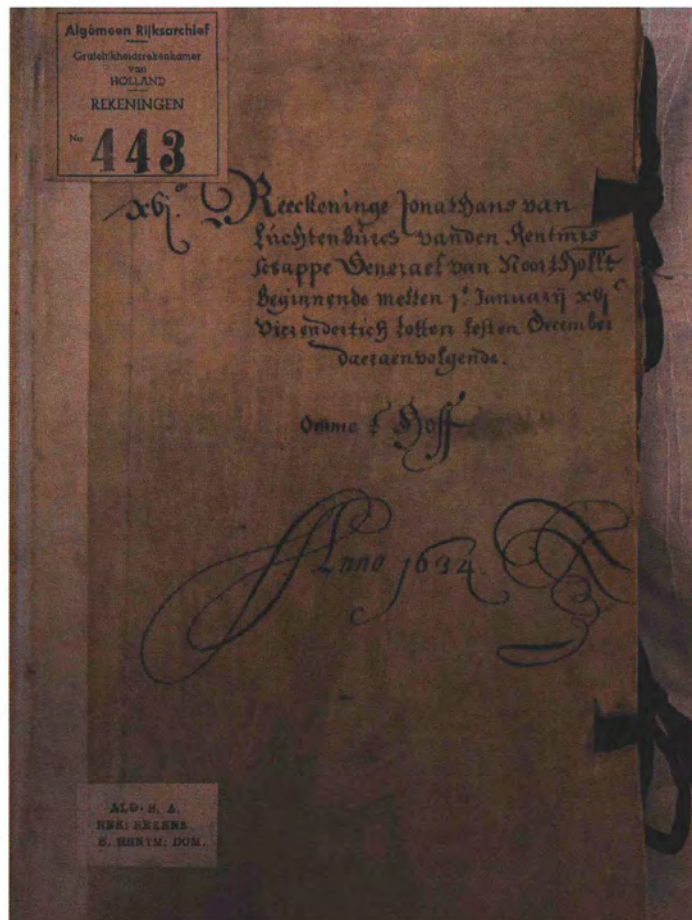 Algemeen Rijksarchief
Grafelijkheidsrekenkamer
van
HOLLAND
REKENINGEN
No 443
xvj.e Reeckoninge Jonathans van
Luchtenburch vanden Rentmrs
scappe Generael van Noorthollt
Beginnende metten j.e January xvj.c
vierendertich totten lesten December
daeraenvolgende.
Omme t' Hoff
Anno 1634.
ALG. R. A.
REK: REKENK
B. RENTM: DOM.